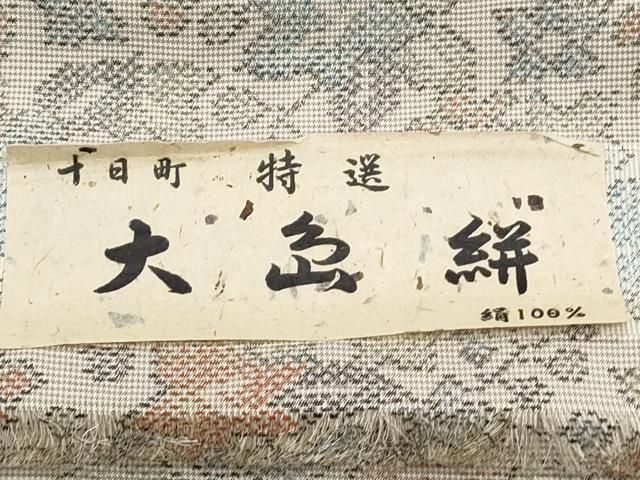 十日町 特選
大島絣
絹100%